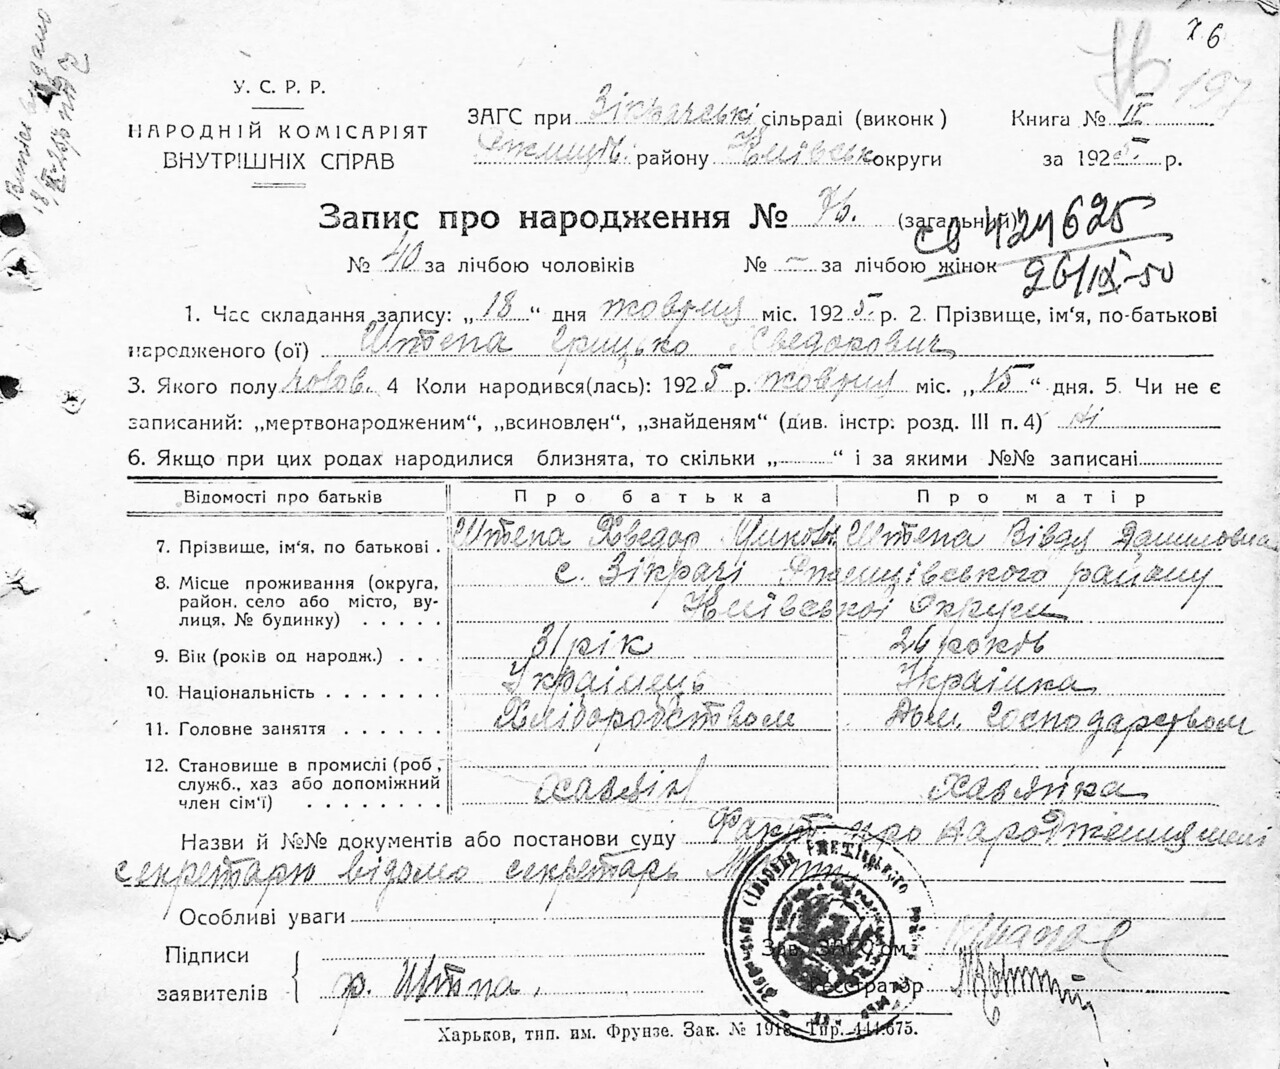 76
197
У. С. Р. Р.
НАРОДНІЙ КОМІСАРІЯТ
ВНУТРІШНІХ СПРАВ
ЗАГС при Зікрачські сільраді (виконк)
Ржищів. району Київськ округи
Книга № ІІ
за 1925 р.
Запис про народження № 76. (загальний)
СЯ 424625
26/IX-50
№ 40 за лічбою чоловіків № – за лічбою жінок
1. Час складання запису: „18“ дня жовтня міс. 1925 р. 2. Прізвище, ім'я, по-батькові
народженого (ої) Штепа Грицько Хведорович
3. Якого полу чолов. 4 Коли народився(лась): 1925 р. жовтня міс. „15“ дня. 5. Чи не є
записаний: „мертвонародженим“, „всиновлен“, „знайденям“ (див. інстр. розд. III п. 4) ні
6. Якщо при цих родах народилися близнята, то скільки „ “ і за якими №№ записані
Відомості про батьків Про батька Про матір
7. Прізвище, ім'я, по батькові . Штепа Хведор Штепа Вівдя Даниловна
8. Місце проживання (округа, район, село або місто, вулиця, № будинку) . . . . . с. Зікрачі Ржищівського району
Київської Округи
9. Вік (років од народж.) . . . 31 рік 26 років
10. Національність . . . . . . . Українець Українка
11. Головне заняття . . . . . . Хліборобством Дом. господарством
12. Становище в промислі (роб., служб., хаз або допоміжний член сім'ї) . . . . . . . . хазяїн хазяйка
Назви й №№ документів або постанови суду Факт про народження мені
секретарю відомо секретарь
Особливі уваги
Підписи
заявителів
ф. Штепа.
Зав. ЗАГС'ом
Реєстратор
Харьков, тип. им. Фрунзе. Зак. № 1918. Тир. 444.675.